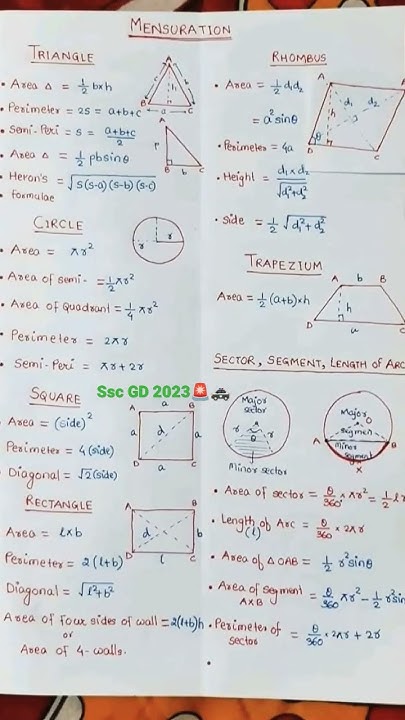 MENSURATION
TRIANGLE
• Area Δ = 1/2 bxh
• Perimeter = 2S = a+b+c
• Semi-Peri = S = a+b+c/2
• Area Δ = 1/2 pb sinθ
• Heron's = √S(s-a)(s-b)(s-c)
• formulae
A
c
h
B
a
C
A
P
B
b
C
CIRCLE
• Area = πr²
• Area of semi- = 1/2 πr²
• Area of Quadrant = 1/4 πr²
• Perimeter = 2πr
• Semi-Peri = πr + 2r
r
r
SQUARE
Area = (side)²
Perimeter = 4(side)
Diagonal = √2(side)
A a B
a d a
D a C
RECTANGLE
Area = lxb
Perimeter = 2(l+b)
Diagonal = √l²+b²
Area of four sides of wall = 2(l+b)h
or
Area of 4-walls.
A B
d b
D l C
RHOMBUS
• Area = 1/2 d₁d₂
= a² sinθ
• Perimeter = 4a
• Height = d₁xd₂/√d₁²+d₂²
• Side = 1/2 √d₁²+d₂²
A
d₁ d₂
h
θ
D
C
TRAPEZIUM
Area = 1/2 (a+b)xh
A b B
h
D a C
SECTOR, SEGMENT, LENGTH OF ARC
Major
sector
r r
θ
Minor sector
Major
O
segmen
A B
Minor
segment
X
• Area of sector = θ/360° × πr² = 1/2 lr
• Length of Arc = θ/360° × 2πr
(l)
• Area of Δ OAB = 1/2 r² sinθ
• Area of segment = θ/360 πr² - 1/2 r² sin
AXB
• Perimeter of = θ/360 × 2πr + 2r
sector
Ssc GD 2023🚨🚓